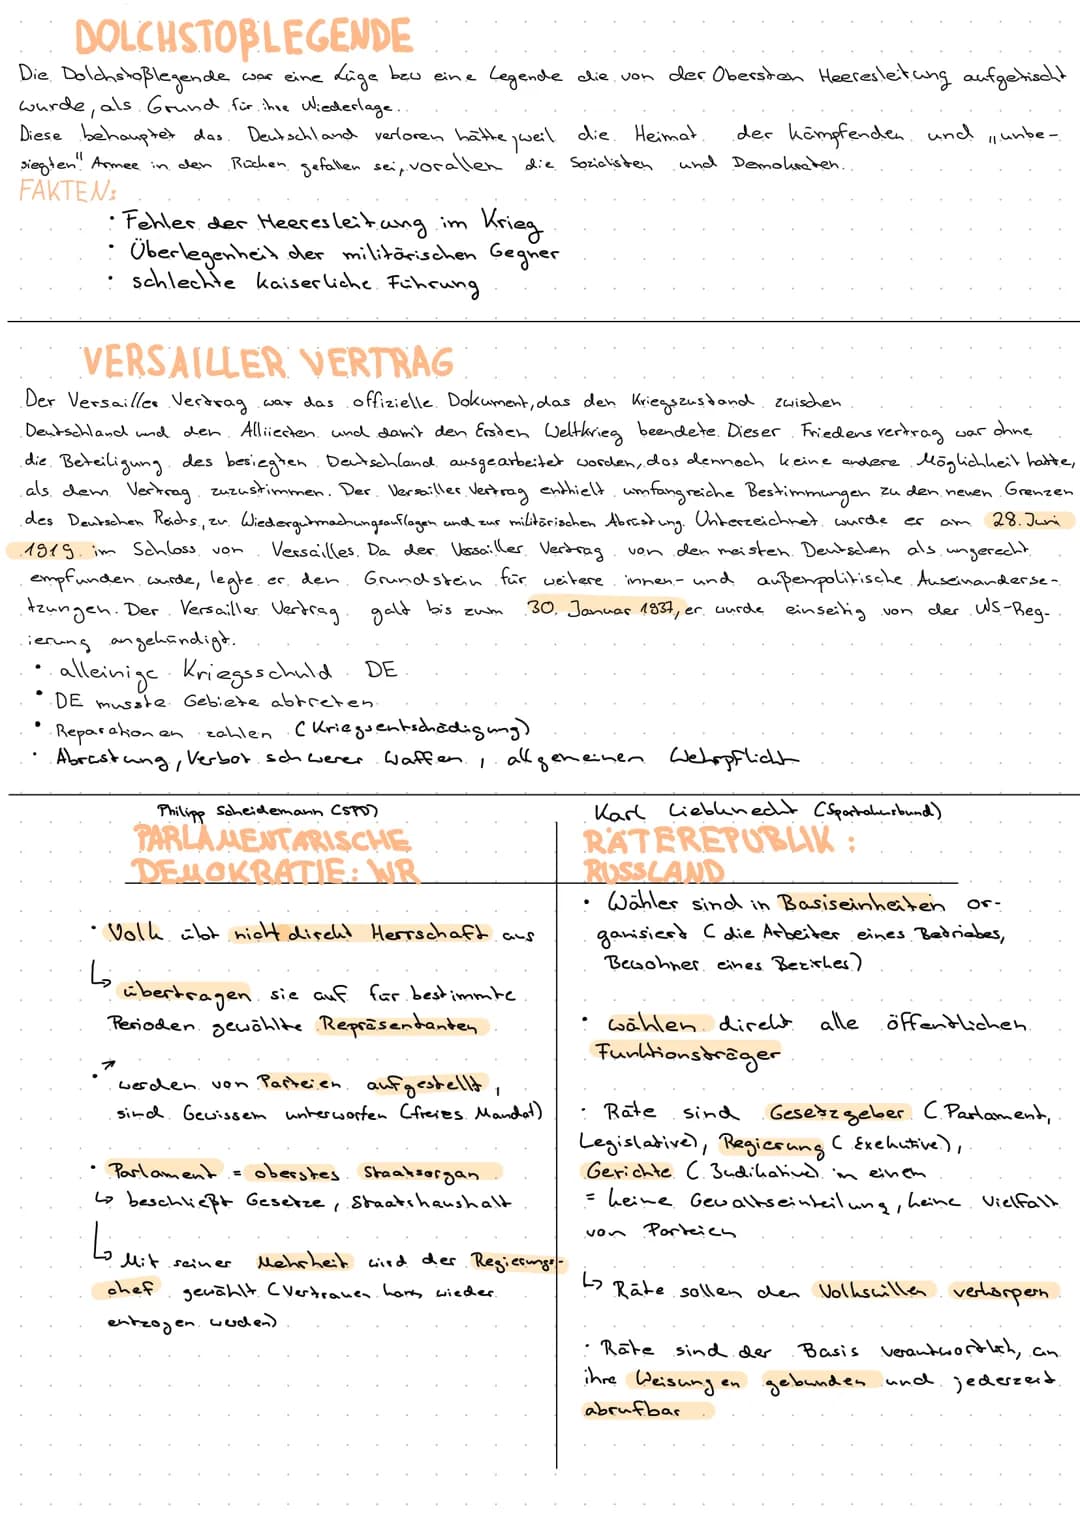 DOLCHSTOßLEGENDE
Die Dolchstoßlegende war eine Lüge bzw eine Legende die von der Obersten Heeresleitung aufgetischt
wurde, als Grund für ihre Niederlage.
Diese behauptet das Deutschland verloren hätte, weil die Heimat der kämpfenden und „unbe-
siegten" Armee in den Rücken gefallen sei, vorallen die Sozialisten und Demokraten.
FAKTEN:
• Fehler der Heeresleitung im Krieg
• Überlegenheit der militärischen Gegner
• schlechte kaiserliche Führung
VERSAILLER VERTRAG
Der Versailler Vertrag war das offizielle Dokument, das den Kriegszustand zwischen
Deutschland und den Alliierten und damit den Ersten Weltkrieg beendete. Dieser Friedensvertrag war ohne
die Beteiligung des besiegten Deutschland ausgearbeitet worden, das dennoch keine andere Möglichkeit hatte,
als dem Vertrag zuzustimmen. Der Versailler Vertrag enthielt umfangreiche Bestimmungen zu den neuen Grenzen
des Deutschen Reichs, zu Wiedergutmachungsauflagen und zur militärischen Abrüstung. Unterzeichnet wurde er am 28. Juni
1919 im Schloss von Versailles. Da der Versailler Vertrag von den meisten Deutschen als ungerecht
empfunden wurde, legte er den Grundstein für weitere innen- und außenpolitische Auseinanderse-
tzungen. Der Versailler Vertrag galt bis zum 30. Januar 1937, er wurde einseitig von der NS-Reg-
ierung angekündigt.
• alleinige Kriegsschuld DE
• DE musste Gebiete abtreten
• Reparationen zahlen (Kriegsentschädigung)
• Abrüstung, Verbot schwerer Waffen, allgemeinen Wehrpflicht
Philipp Scheidemann (SPD)
PARLAMENTARISCHE
DEMOKRATIE: WR
• Volk übt nicht direkt Herrschaft aus
↳ übertragen sie auf für bestimmte
Perioden gewählte Repräsentanten
• ↗ werden von Parteien aufgestellt,
sind Gewissem unterworfen (freies Mandat)
• Parlament = oberstes Staatsorgan
↳ beschließt Gesetze, Staatshaushalt
↳ Mit seiner Mehrheit wird der Regierungs-
chef gewählt (Vertrauen kann wieder
entzogen werden)
Karl Liebknecht (Spartakusbund)
RÄTEREPUBLIK:
RUSSLAND
• Wähler sind in Basiseinheiten or-
ganisiert (die Arbeiter eines Betriebes,
Bewohner eines Bezirkes)
• wählen direkt alle öffentlichen
Funktionsträger
• Räte sind Gesetzgeber (Parlament,
Legislative), Regierung (Exekutive),
Gerichte (Judikative) in einem
= keine Gewaltseinteilung, keine Vielfalt
von Parteien
↳ Räte sollen den Volkswillen verkörpern
• Räte sind der Basis verantwortlich, an
ihre Weisungen gebunden und jederzeit
abrufbar